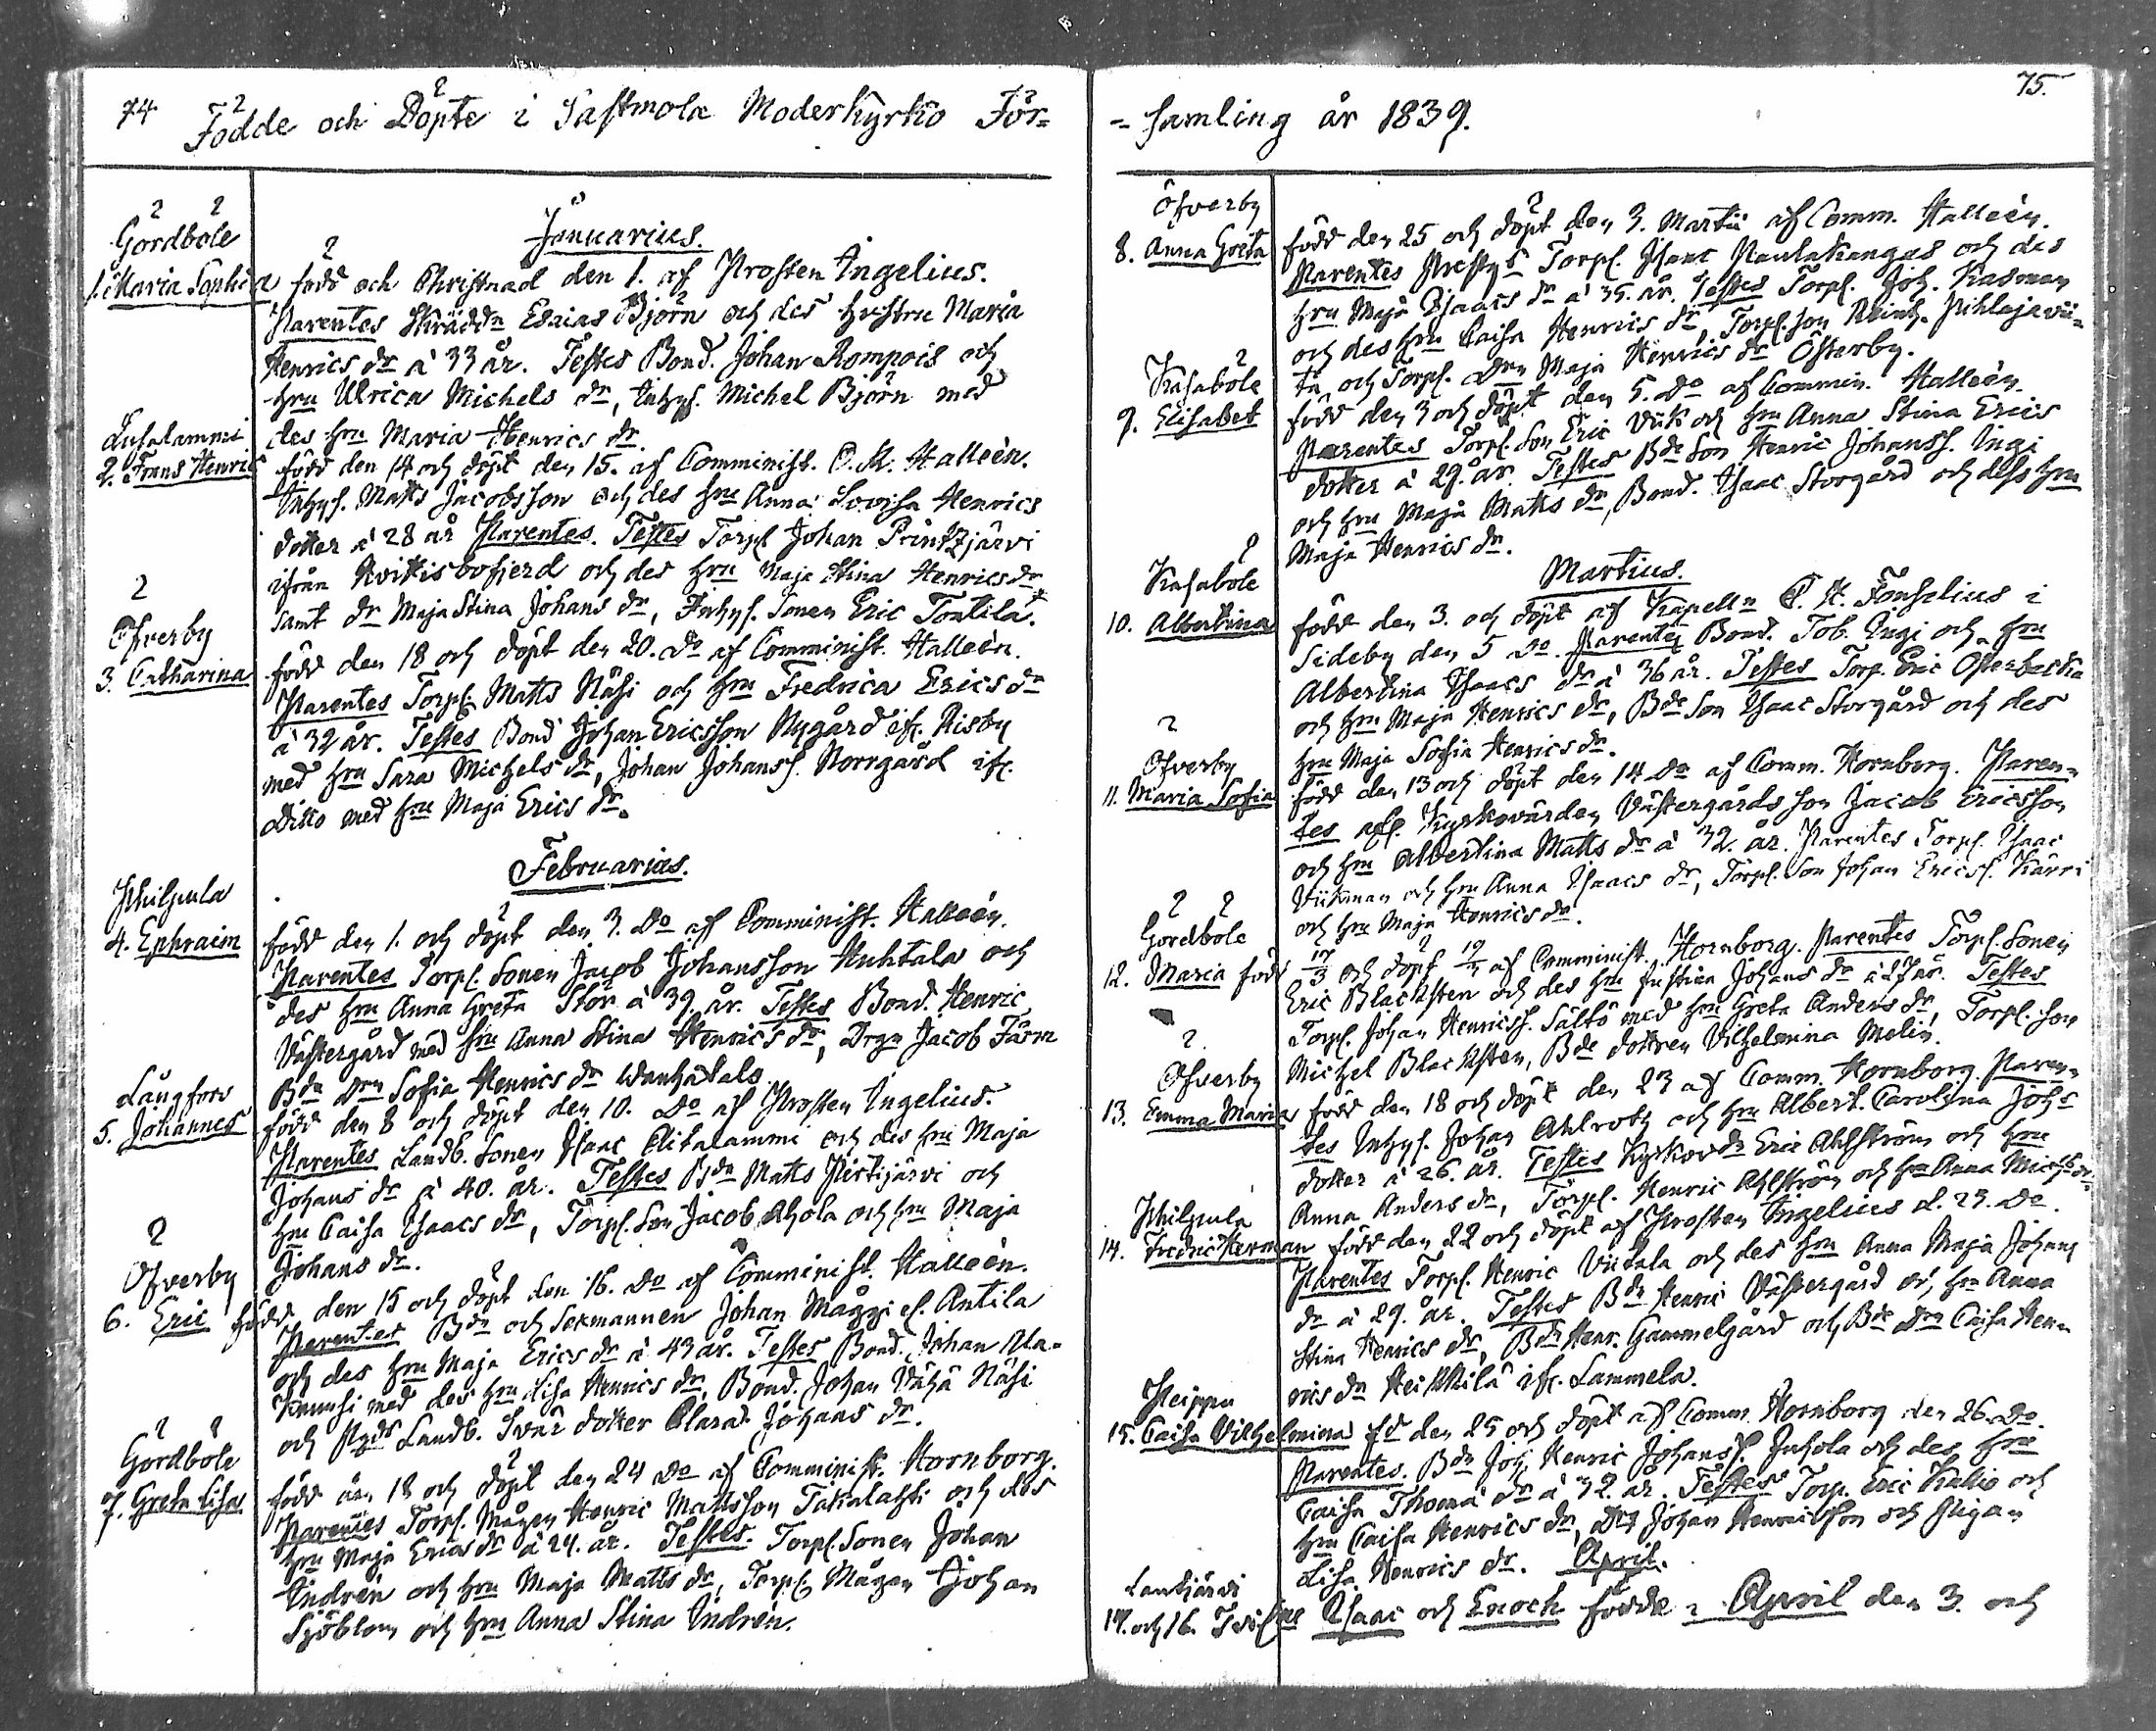 74
Födde och Döpte i Sastmola Moderkyrko För=
Januarius.
Gårdböle
1. Maria Sophia, född och Christnad den 1. af Prosten Ingelius.
Parentes Skrädd:n Esaias Björn och des hustru Maria
Henrics dr à 33 år. Testes Bond. Johan Rompois och
hru Ulrica Michels dr, Inhys. Michel Björn med
des hru Maria Henrics dr.
Lulalammi
2. Frans Henric född den 14 och döpt den 15. af Comminist. C. M. Halleèn.
Inhys. Matts Jacobsson och des hru Anna Lovisa Henrics
dotter à 28 år Parentes. Testes Torp. Johan Printzjärvi
ifrån Kvikisbofjerd och des hru Maja Stina Henrics dr
samt dr Maja Stina Johans dr, Inhys. Sonen Eric Tontila.
Ofverby
3. Catharina född den 18 och döpt den 20. do af Comminist. Halleèn.
Parentes Torp. Matts Näsi och hru Fredrica Erics dr
à 32 år. Testes Bond Johan Ericsson Nygård ifr. Risby
med hru Sara Michels dr, Johan Johanss. Norrgård ifr.
ditto med hru Maja Erics dr.
Februarius.
Philpula
4. Ephraim född den 1. och döpt den 3. do af Comminist. Halleèn.
Parentes Torp. Sonen Jacob Johansson Huhtala och
des hru Anna Greta Stor à 39. år. Testes Bond. Henric
Västergård med hru Anna Stina Henrics dr, Drgn Jacob Färm
Bdn Drn Sofia Henrics dr Wanhatalo
Långfors
5. Johannes född den 8 och döpt den 10. do af Prosten Ingelius.
Parentes Landb. Sonen Isaac Alitalammi och des hru Maja
Johans dr à 40. år. Testes Bdn Matts Pirtijärvi och
hru Caisa Isaacs dr, Torp. Son Jacob Ahola och hru Maja
Johans dr.
Ofverby
6. Eric född den 15 och döpt den 16. do af Comminist. Halleèn.
Parentes Bdn och Sexmannen Johan Mäggi el. Antila
och des hru Maja Erics dr à 43 år. Testes Bond. Johan Ala=
Knuusi med des hru Lisa Henrics dr, Bond. Johan Vähä Näsi
och Landb. Svär dotter Clara Johans dr.
Gårdböle
7. Greta Lisa född den 18 och döpt den 24 do af Comminist. Hornborg.
Parentes Torp. Mågen Henric Mattsson Takalahti och des
hru Maja Erics dr à 24. år. Testes. Torp. Sonen Johan
Indrèn och hru Maja Matts dr, Torp. Mågen Johan
Sjöblom och hru Anna Stina Indrèn.
75.
=samling år 1839.
Öfverby
8. Anna Greta född den 25 och döpt den 3. Martii af Comm. Halleèn.
Parentes Torp. Isaac Paulakangas och des
hru Maja Isaacs dr à 35. år. Testes Torp. Joh. Kasman
och des hru Caisa Henrics dr, Torp. son Reinh. Pihlajavii=
ta, och Torp. Drn Maja Henrics dr Österby.
Kasaböle
9. Elisabet född den 3 och döpt den 5. do af Commin. Halleèn
Parentes Torp. Son Eric Viik och hru Anna Stina Erics
dotter à 29. år. Testes Bde Son Henric Johanss. Ingi
och hru Maja Matts dr, Bond. Isaac Storgård och dess hru
Maja Henrics dr.
Martius.
Kasaböle
10. Albertina född den 3. och döpt af Kapelln C. H. Fonselius i
Sideby den 5 do. Parentes Bond. Tob. Ingi och hru
Albertina Isaacs dr à 36 år. Testes Torp. Eric Österbacka
och hru Maja Henrics dr, Bde Son Isaac Storgård och des
hru Maja Sofia Henrics dr.
Ofverby
11. Maria Sofia född den 13 och döpt den 14 do af Comm. Hornborg. Paren=
tes afl. Kyrkovärden Västergårds son Jacob Ericsson
och hru Albertina Matts dr à 32. år. Parentes Torp. Isaac
Viikman och hru Anna Isaacs dr, Torp. Son Johan Ericss. Kärri
och hru Maja Henrics dr.
Gårdböle
12. Maria född 17/3 och döpt 19/3 af Comminist. Hornborg. Parentes Torp. Sonen
Eric Blacksten och des hru Justina Johans dr à 27 år. Testes
Torp. Johan Henricss. Sältö med hru Greta Anders dr, Torp. son
Michel Blacksten, Bde dottren Vilhelmina Molin.
Ofverby
13. Emma Maria född den 18 och döpt den 23 af Comm. Hornborg. Paren=
tes Inhys. Johan Ahlroth och hru Albert. Carolina Johs
dotter à 26. år. Testes Kyrkov:dn Eric Ahlström och hru
Anna Anders dr, Torp. Henric Ahlström och hru Anna Michls dr.
Philpula
14. Fredric Herman född den 22 och döpt af Prosten Ingelius d. 23. do.
Parentes Torp. Henric Viitala och des hru Anna Maja Johans
dr à 29. år. Testes Bdn Henric Västergård o, hru Anna
Stina Henrics dr, Bdn Henr. Gammelgård och Bde Drn Caisa Hen=
rics dr Heikkilä ifr. Lammela.
Peippu
15. Caisa Vilhelmina fd den 25 och döpt af Comm. Hornborg den 26. do
Parentes. Bdn Joh. Henric Johanss. Juhola och des hru
Caisa Thomæ dr à 32. år. Testes Torp. Eric Kallio och
hru Caisa Henrics dr, Drg Johan Henricsson och Pigan
Lisa Henrics dr. April.
Lautjärvi
17. och 16. Isaac och Enoch födde i April den 3. och